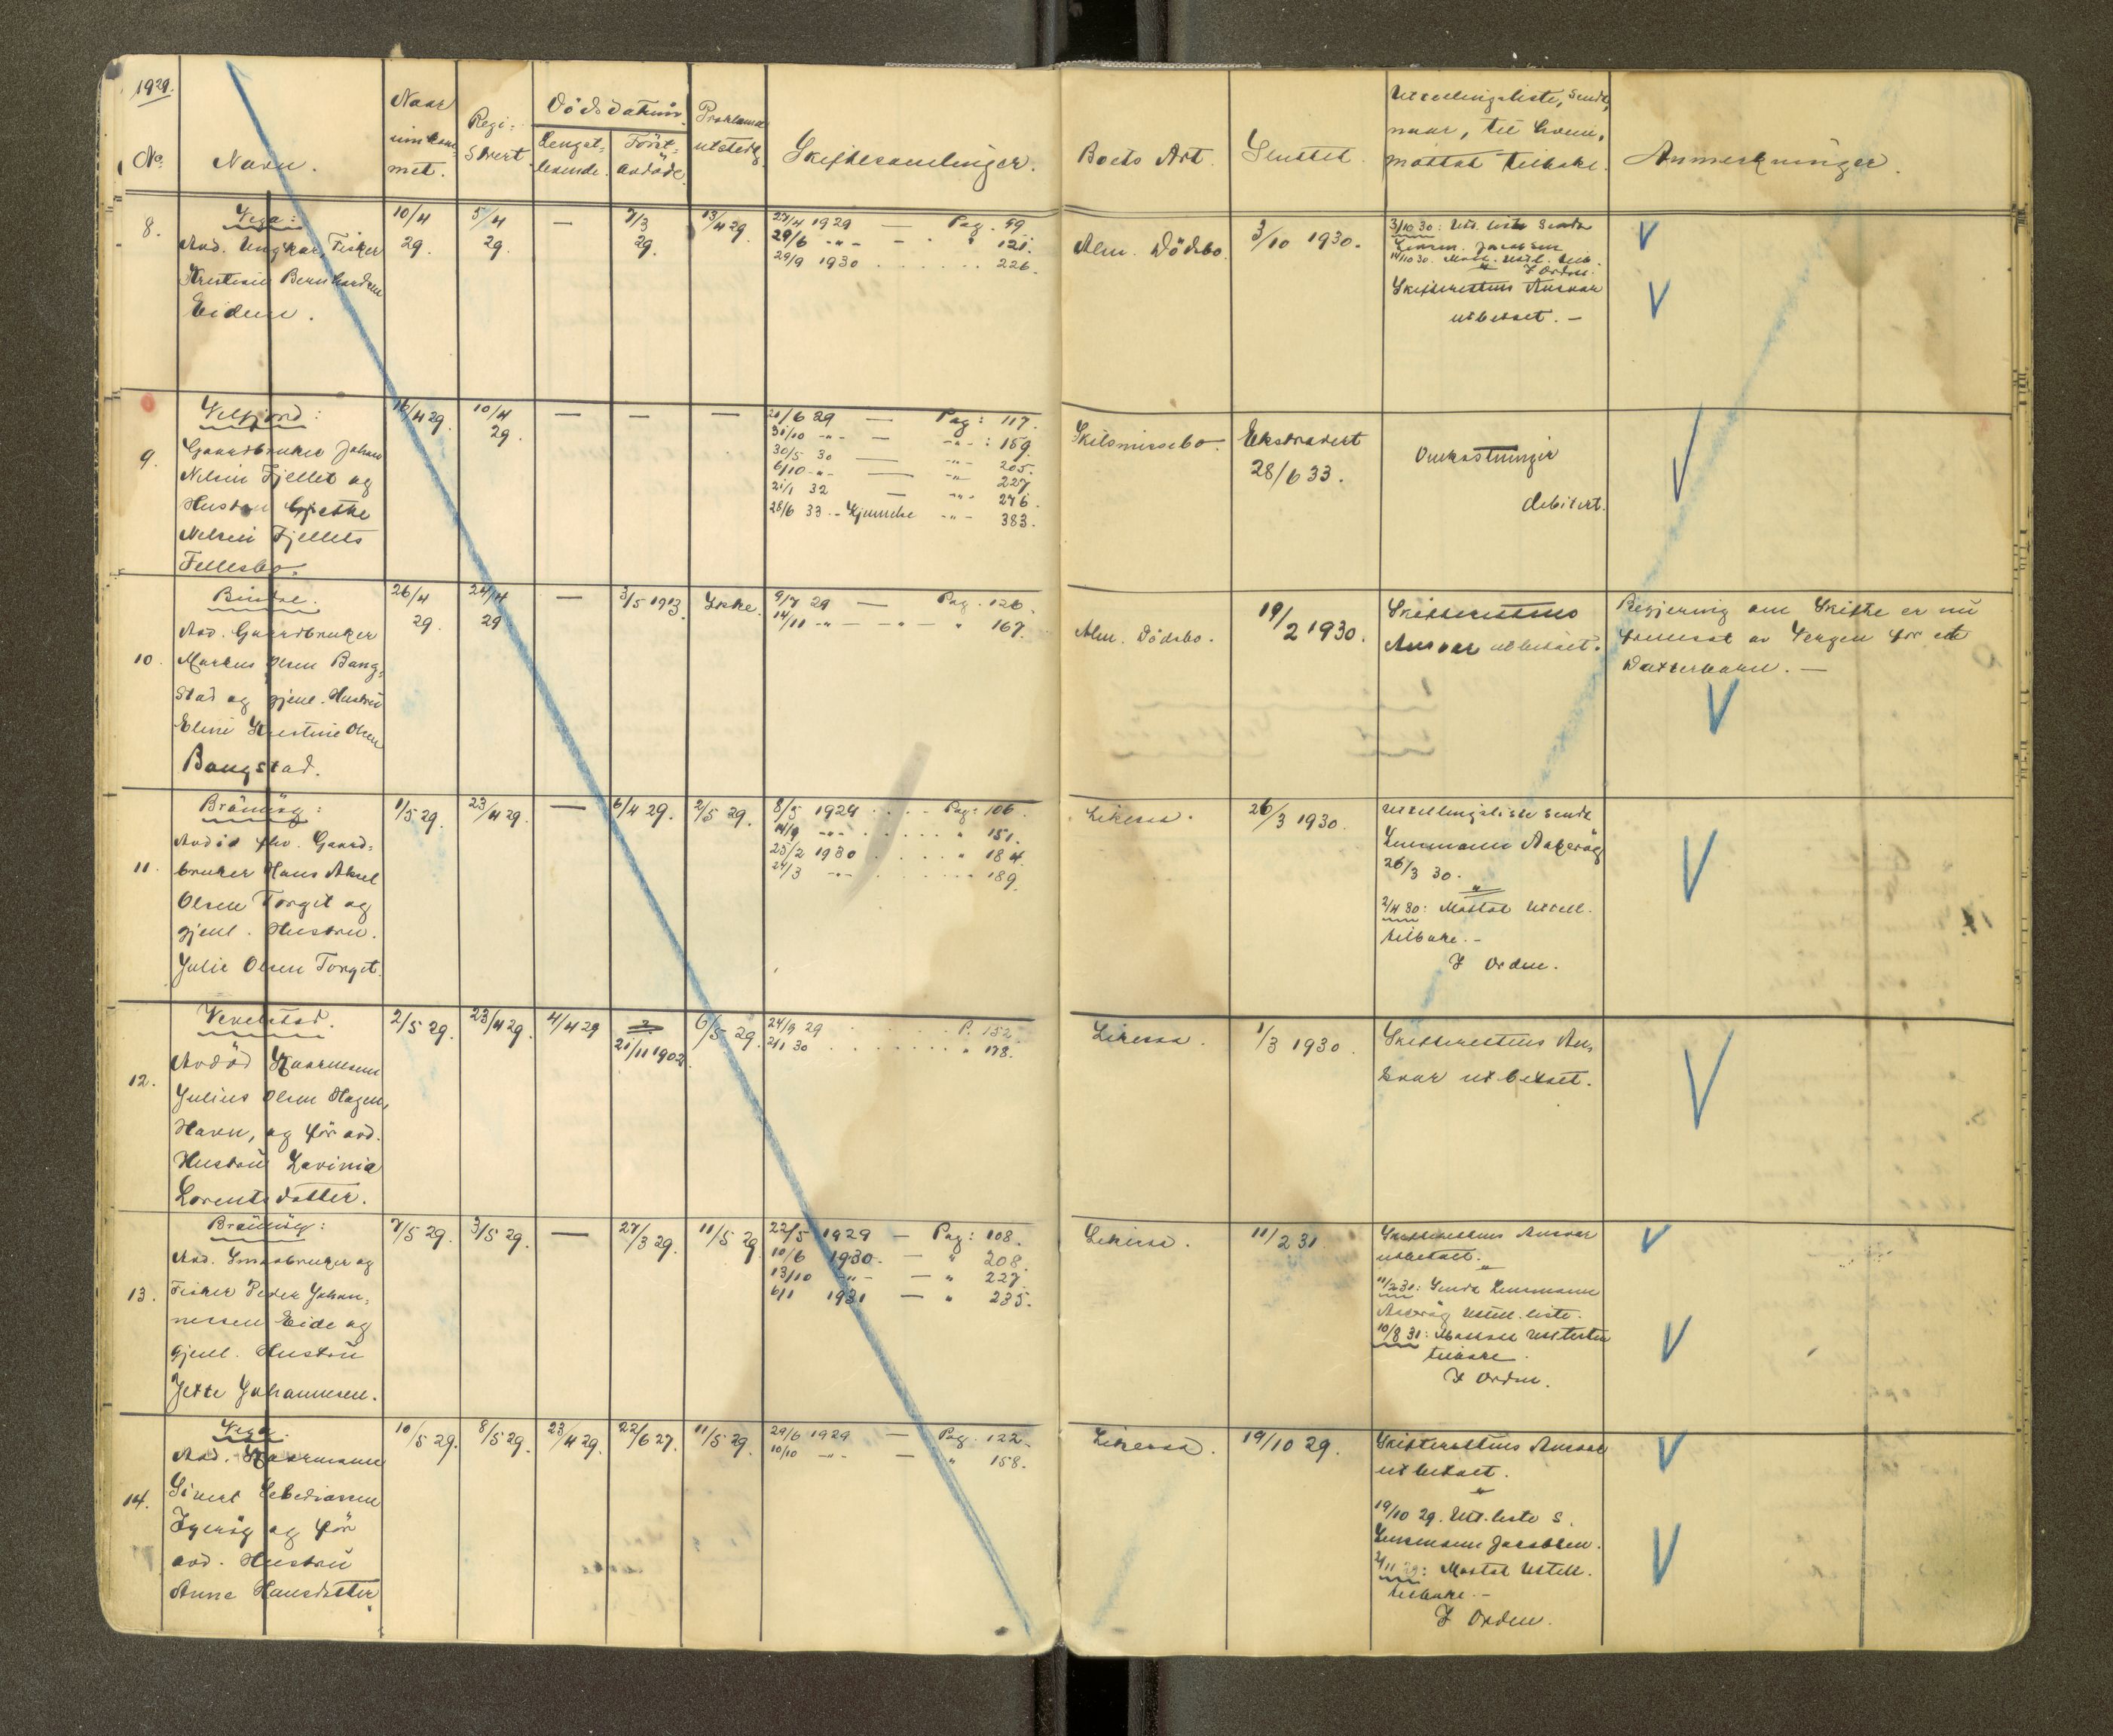 1929.
No.
Navn.
Naar
innkom=
met.
Regi=
strert
Dödsdatum.
Lengst=
levende.
Först=
avdöde.
Proklama
utstedt
Skiftesamlinger.
Boets Art.
Sluttet.
Utstillingsliste, sendt,
naar, til hvem,
mottat tilbake.
Anmerkninger.
8.
Vega:
Avd. Ungkar, Fisker
Kristian Bernhardsen
Eidem.
10/4
29.
5/4
29.
—
7/3
29.
13/4 29.
27/4 1929 — Pag. 99
29/6 -"- - " 121.
29/9 1930 . . . . . . 226.
Alm. Dödsbo.
3/10 1930.
3/10 30: Utst. liste sendt
Lensm. Jacobsen
14/10 30. Mott. utst. l. tilb.
I Orden.
Skifterettens Ansvar
utbetalt. —
9.
Velfjord:
Gaardbruker Johan
Nelsen Fjellet og
Hustru
Nelsen Fjellets
Fellesbo.
16/4 29.
10/4
29.
—
—
—
21/6 29 — Pag: 117.
31/10 -"- — -"-: 159.
30/5 30 — -"- 205.
6/10 -"- — -"- 227
21/1 32 — -"- 276.
28/6 33 - Hjemme -"- 383.
Skilsmissebo.
Ekstradert
28/6 33.
Omkostninger
debitert.
10.
Bindal.
Avd. Gaardbruker
Markus Olsen Bang=
stad og gjenl. Hustru
Eline Kristine Olsen
Bangstad.
26/4
29.
24/4
29
—
3/5 1913.
Ikke.
9/7 29 — Pag. 126.
14/11 -"- — -"- — " 167.
Alm. Dödsbo.
19/2 1930.
Skifterettens
Ansvar utbetalt.
Begjering om Skifte er nu
fremsat av Vergen for et
Datterbarn. —
11.
Brönnöy:
Avdöd fhv. Gaard=
bruker Hans Aksel
Olsen Torget og
gjenl. Hustru.
Julie Olsen Torget.
1/5 29.
23/4 29.
—
6/4 29.
2/5 29.
8/5 1929 . . . . Pag: 106.
14/9 -"- . . . . . " 151.
25/2 1930 . . . . " 184.
24/3 -"- . . . . . . 189.
Likesaa.
26/3 1930.
Utstillingsliste sendt
Lensmann Aakeröy
26/3 30.
"
2/4 30: Mottat Utstill.
tilbake. —
I Orden.
12.
Vevelstad.
Avdöd Kaarmann
Julius Olsen Hagen,
Havn, og för avd.
Hustru Lavinia
Lorentsdatter.
2/5 29.
23/4 29.
4/4 29
?
21/11 1902.
6/5 29.
24/9 29 . . . . . . P. 152.
21/1 30 . . . . . . . " 178.
Likesaa.
1/3 1930.
Skifterettens An=
svar utbetalt.
13.
Brönnöy:
Avd. Smaabruker og
Fisker Peder Johan=
nessen Eide og
gjenl. Hustru
Jette Johannessen.
7/5 29.
3/5 29.
—
27/3 29.
11/5 29
22/5 1929 — Pag: 108.
10/6 1930. — " 208.
13/10 -"- — " 227.
6/1 1931 — " 235.
Likesaa.
11/2 31.
Skifterettens Ansvar
utbetalt.
"
11/2 31: Sendt Lensmann
Aakeröy Utstill. liste.
10/8 31: Mottatt Utst.listen
tilbake.
I Orden.
14.
Vega.
Avd. Kaarmann
Sivert Sebediassen
Igeröy og för
avd. Hustru
Anne Hansdatter.
10/5 29.
8/5 29.
23/4 29.
22/6 27.
11/5 29.
29/6 1929 — Pag. 122.
10/10 -"- — " 158.
Likesaa.
19/10 29.
Skifterettens Ansvar
utbetalt.
"
19/10 29. Utst. liste s.
Lensmann Jacobsen.
2/11 29: Mottat Utstill.
tilbake. —
I Orden.